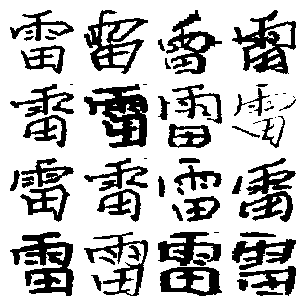 雷雷雷雷
雷雷雷雷
雷雷雷雷
雷雷雷雷